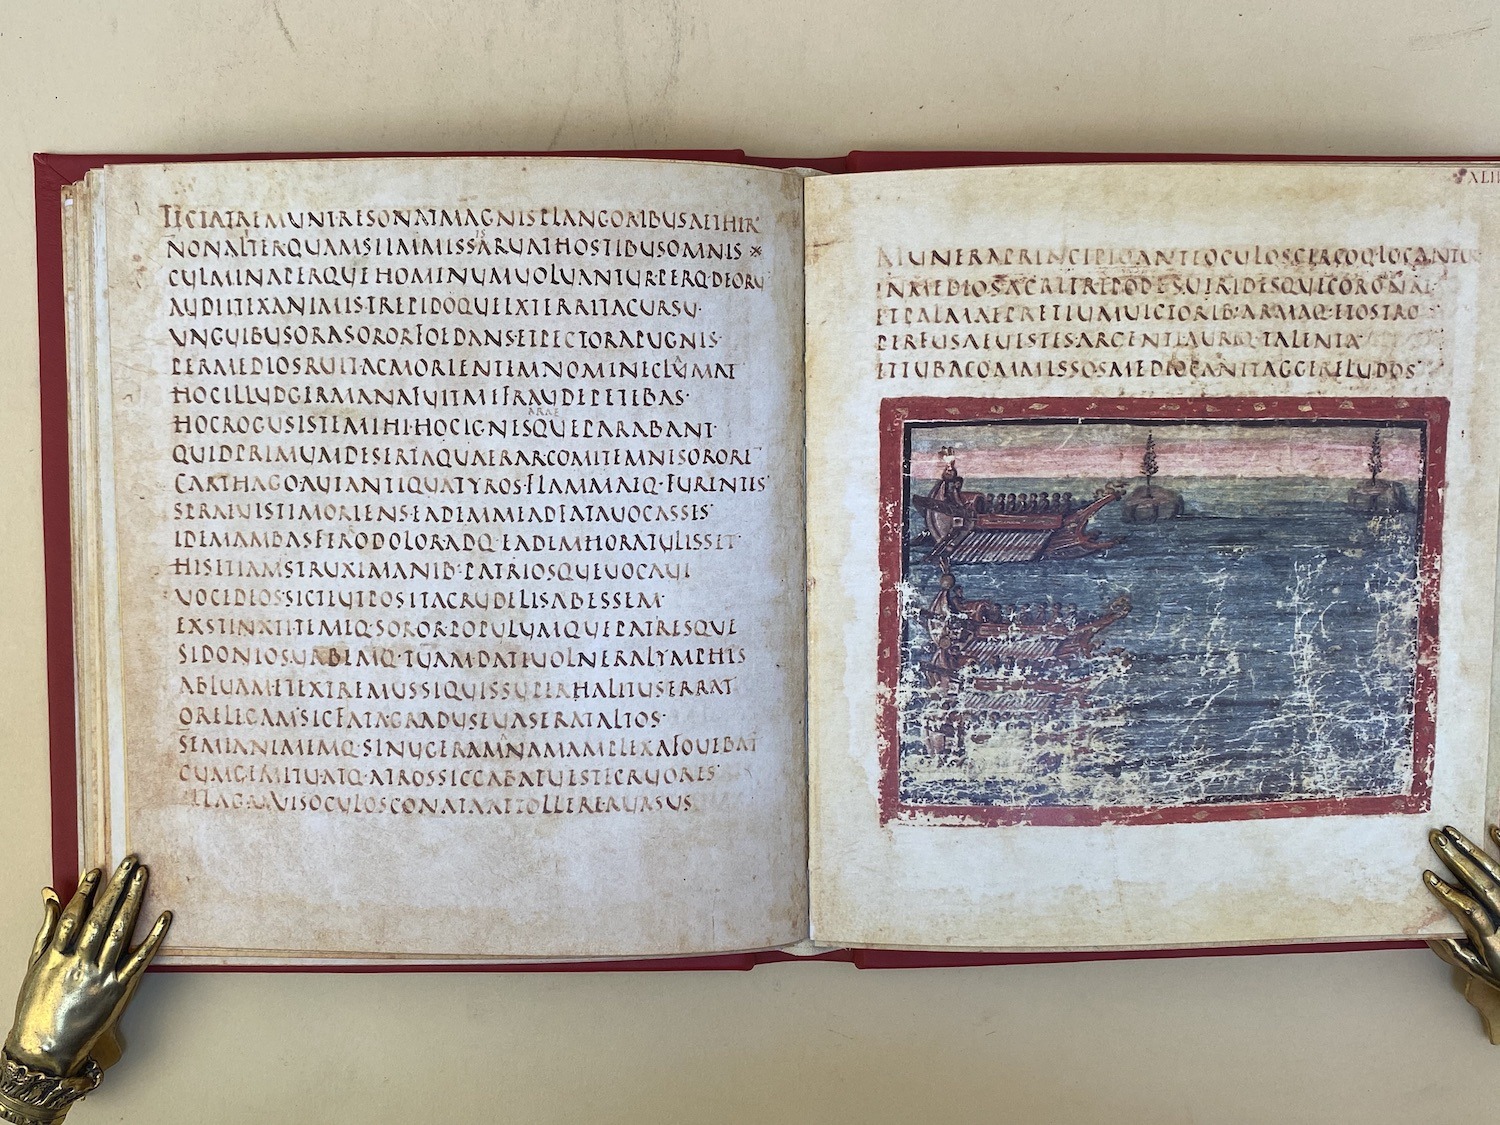 TECTAFREMUNTRESONATMAGNISPLANGORIBUSAETHER
NONALITERQUAMSIIMMISSISARUATHOSTIBUSOMNIS
CULMINAPERQUEHOMINUMUOLUANTURPERQ·DEORU
AUDIITEXANIMIS·TREPIDOQUEEXTERRITACURSU·
UNGUIBUSORASORORFOEDANS·ETPECTORAPUGNIS·
PERMEDIOSRUITACMORIENTEMNOMINECLAMAT
HOCILLUDGERMANAFUITMEFRAUDEPETEBAS·
ARAE
HOCROGUSISTEMIHI·HOCIGNESQUEPARABANT·
QUIDPRIMUMDESERTAQUAERARCOMITEMNESORORE
CARTHAGOAUTANTIQUATYROS·FLAMMAEQ·FURENTES
SPREUISTIMORIENS·EADEMMEADFATAUOCASSES
IDEMAMBASFERRODOLORADQ·EADEMHORATULISSET
HISETIAMSTRUXIMANIB·PATRIOSQUEUOCAUI
UOCEDEOS·SICTEUTPOSITACRUDELISABESSEM·
EXSTINXTITEMEQ·SOROR·POPULUMQUEPATRESQUE
SIDONIOS·URBEMQ·TUAM·DATEUOLNERALYMPHIS
ABLUAMETEXTREMUSSIQUISSUPERHALITUSERRAT
ORELEGAM·SICFATAGRADUSEUASERATALTOS·
SEMIANIMEMQ·SINUGERMANAMAMPLEXAFOUEBAT
CUMGEMITUATQ·ATROSSICCABATUESTECRUORES
ILLAGRAUISOCULOSCONATAATTOLLERERURSUS
MUNERAPRINCIPIOANTEOCULOSCIRCOQ·LOCANTUR
INMEDIOSACRITRIPODESUIRIDESQUECORONAE
ETPALMAEPRETIUMUICTORIB·ARMAQ·ETOSTRO
PERFUSAEUESTESARGENTIAURIQ·TALENTA
ETTUBACOMMISSOSMEDIOCANITAGGERELUDOS